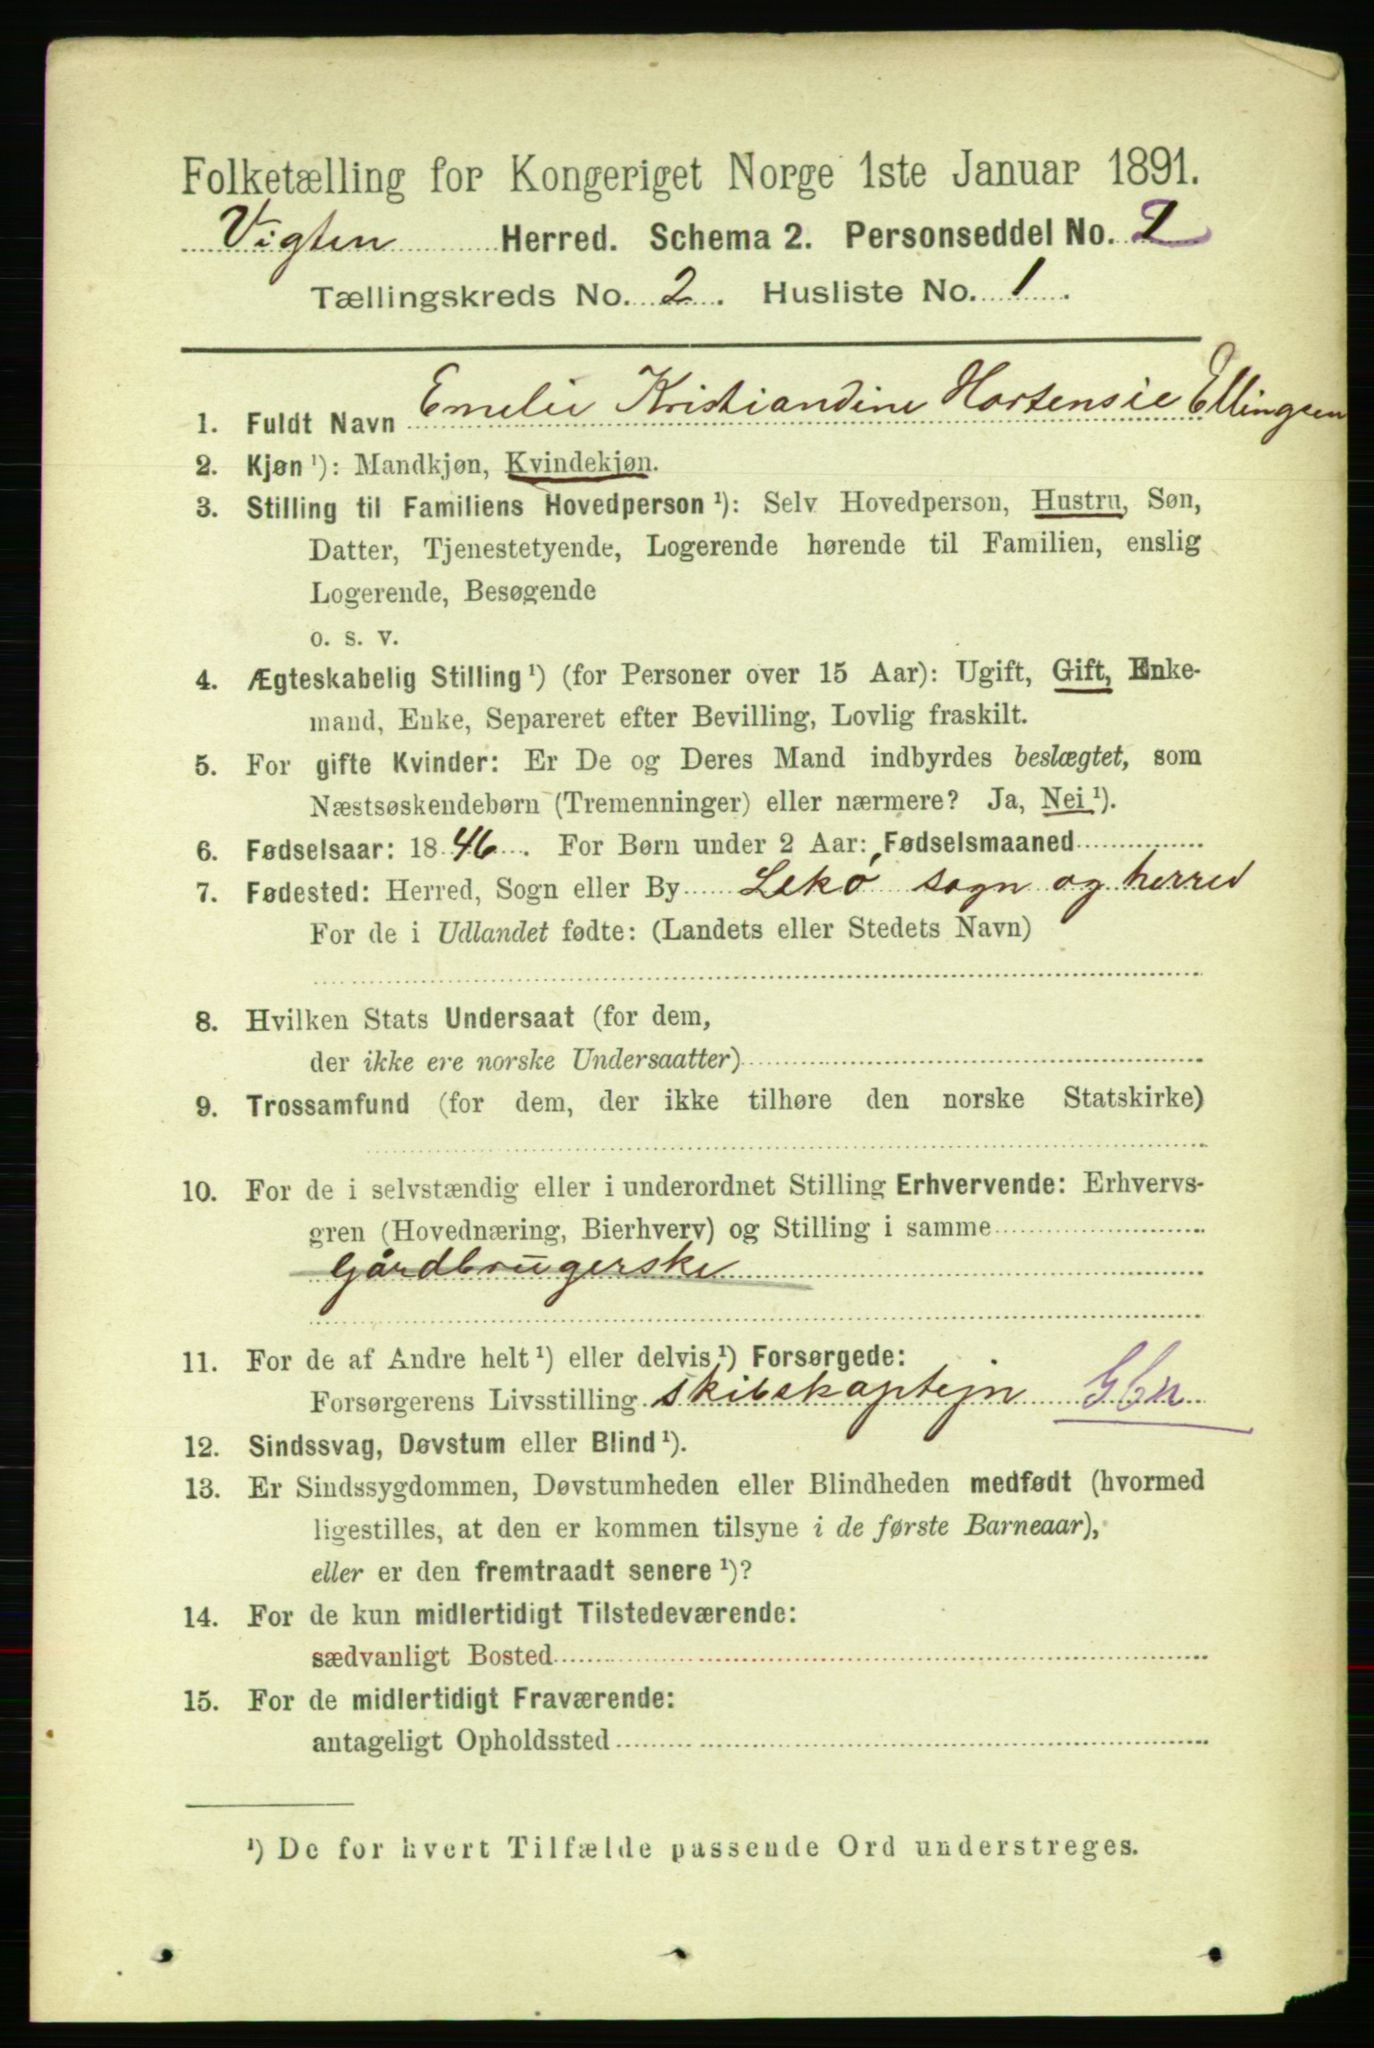 Folketælling for Kongeriget Norge 1ste Januar 1891.
Vigten Herred. Schema 2. Personseddel No. 2
Tællingskreds No. 2. Husliste No. 1.
1. Fuldt Navn Emelie Kristiandine Hortensie Ellingsen
2. Kjøn ¹): Mandkjøn, Kvindekjøn.
3. Stilling til Familiens Hovedperson ¹): Selv Hovedperson, Hustru, Søn,
Datter, Tjenestetyende, Logerende hørende til Familien, enslig
Logerende, Besøgende
o. s. v.
4. Ægteskabelig Stilling ¹) (for Personer over 15 Aar): Ugift, Gift, Enke-
mand, Enke, Separeret efter Bevilling, Lovlig fraskilt.
5. For gifte Kvinder: Er De og Deres Mand indbyrdes beslægtet, som
Næstsøskendebørn (Tremenninger) eller nærmere? Ja, Nei ¹).
6. Fødselsaar: 1846. For Børn under 2 Aar: Fødselsmaaned
7. Fødested: Herred, Sogn eller By Lekø sogn og herred
For de i Udlandet fødte: (Landets eller Stedets Navn)
8. Hvilken Stats Undersaat (for dem,
der ikke ere norske Undersaatter)
9. Trossamfund (for dem, der ikke tilhøre den norske Statskirke)
10. For de i selvstændig eller i underordnet Stilling Erhvervende: Erhvervs-
gren (Hovednæring, Bierhverv) og Stilling i samme
Gårdbrugerske
11. For de af Andre helt ¹) eller delvis ¹) Forsørgede:
Forsørgerens Livsstilling skibskaptejn
12. Sindssvag, Døvstum eller Blind ¹).
13. Er Sindssygdommen, Døvstumheden eller Blindheden medfødt (hvormed
ligestilles, at den er kommen tilsyne i de første Barneaar),
eller er den fremtraadt senere ¹)?
14. For de kun midlertidigt Tilstedeværende:
sædvanligt Bosted
15. For de midlertidigt Fraværende:
antageligt Opholdssted
¹) De for hvert Tilfælde passende Ord understreges.